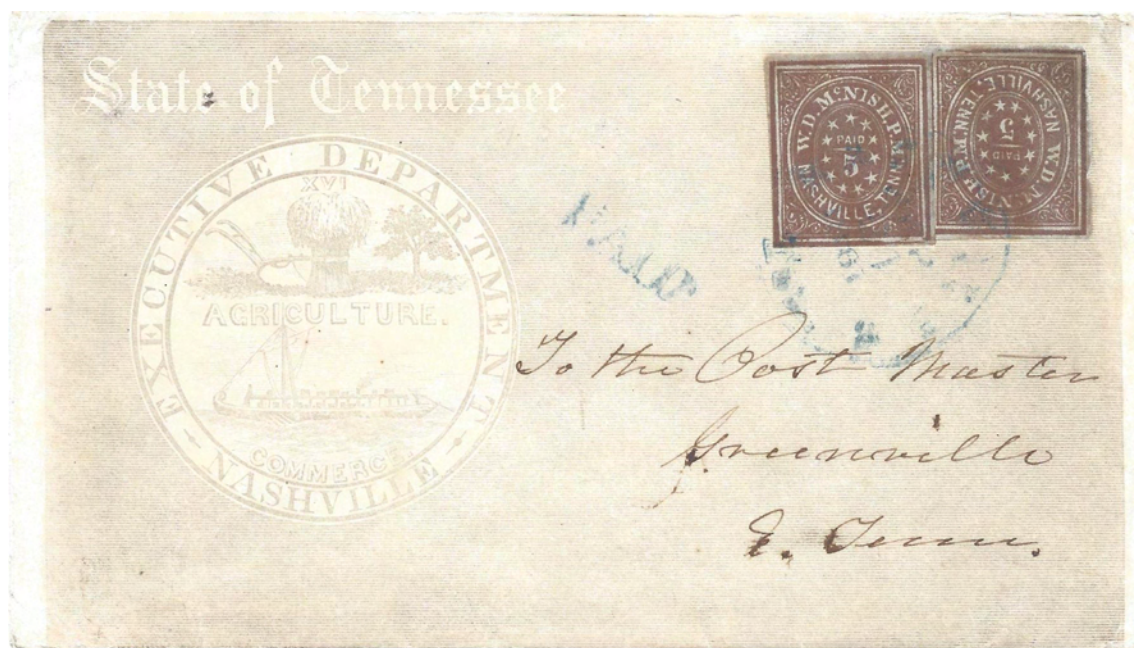 State of Tennessee
EXECUTIVE DEPARTMENT
XVI
AGRICULTURE.
COMMERCE
NASHVILLE
W.D. McNISH, P.M.
PAID
5
NASHVILLE, TENN.
W.D. McNISH, P.M.
PAID
5
NASHVILLE, TENN.
PAID
61
To the Post Master
Greenville
E. Tenn.